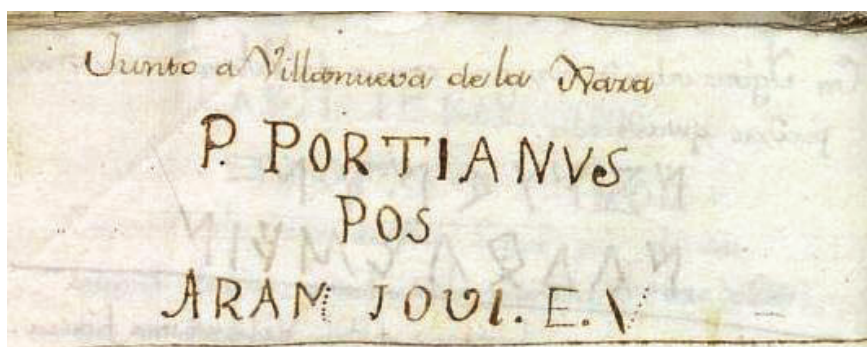 Junto a Villanueva de la Xara
P. PORTIANVS
POS
ARAM JOVI. E. V